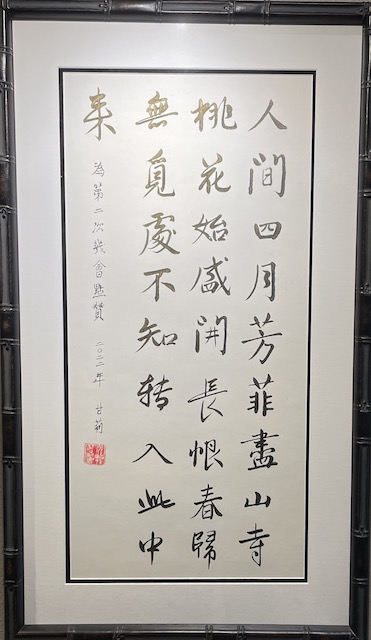 人間四月芳菲盡山寺
桃花始盛開長恨春歸
無覓處不知轉入此中
来
為第二次機會點贊 二〇二二年 甘莉